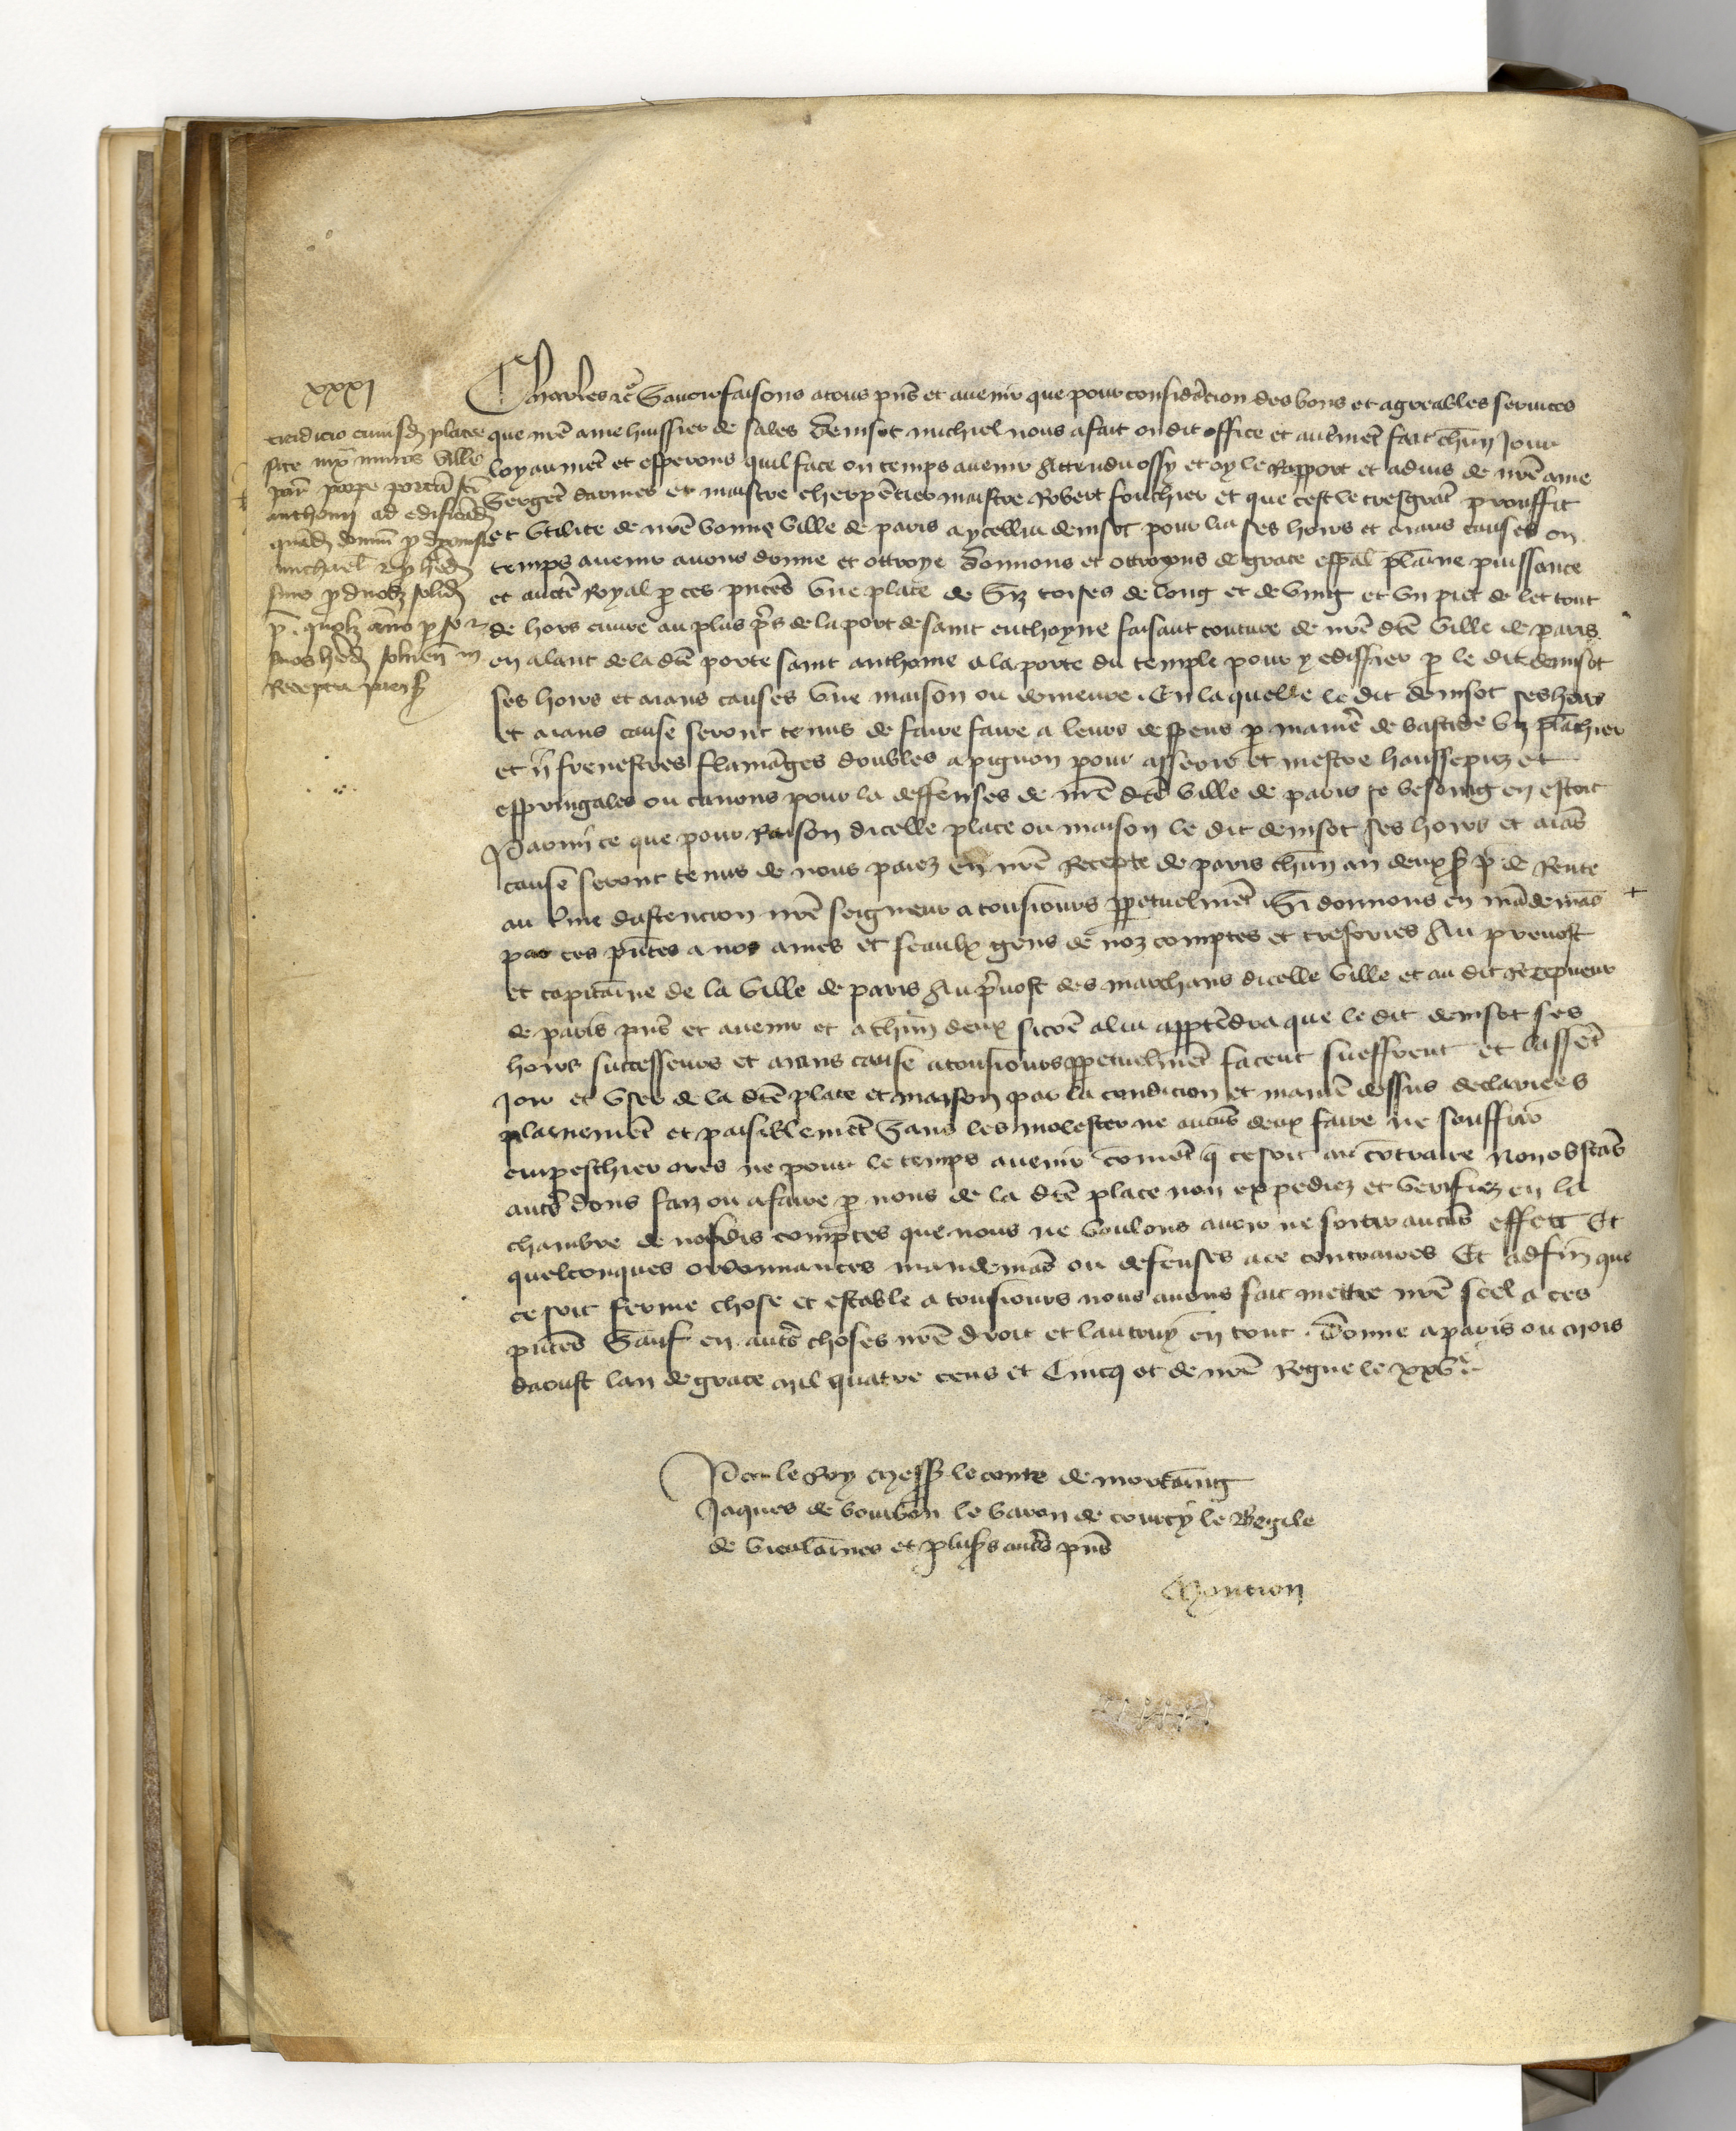 xxxi
tradicio cuiusd platee
site iux muros ville
par prope portā sci
anthonii ad edificād
quādā domū p denisot
michael et p hed
suos p duobz solid
p quolz āno p se et
suos hed solvend in
recepta paris
Charles etc Savoir faisons a tous pns et avenir que pour consideracion des bons et agreables services
que nre ame huissier de sales Denisot michiel nous a fait ou dit office et autremēt fait chūn Jour
loyaumēt et esperons quil face ou temps avenir Attendu ossy et oy le Rapport et advis de nre ame
Sergēt darmes et maistre cherpētier maistre Robert fouchier et que cest le tresgrāt prouffit
et utilite de nre bonne ville de paris a ycellui denisot pour lui ses hoirs et aians causes ou
temps avenir avons donne et ottroye Donnons et ottroyons de grace espāl plaine puissance
et aucte Royal p ces pntes une place de Six toises de long et de vint et un piet de let tout
de hors euvre au plus prs de la port de saint enthoyne faisant couture de nre dte ville de paris
en alant de la dte porte saint anthoine a la porte du temple pour y ediffier p le dit denisot
ses hoirs et aians causes une maison ou demeure . En laquelle le dit denisot ses hoirs
et aians cause seront tenus de faire faire a leurs despens p maniē de bastide un plāchier
et ii frenestres flamāges doubles a pignon pour asseoir et mestre haussepiez et
espringales ou canons pour la deffenses de nre dte ville de paris se besoing en estoit
Parmi ce que pour Raison dicelle place ou maison le dit denisot ses hoirs et aiās
cause seront tenus de nous paiez en nre Recepte de paris chūn an deux s p de Rente
au tme dastencion nre seigneur a tousiours ppetuelmēt Si donnons en mādemās
par ces pntes a nos ames et feaulx gens de noz comptes et tresories Au prevost
et capitaine de la ville de paris Au prvost des marchans dicelle ville et au dit Recepveur
de paris pns et avenir et a chūn deux sicōe a lui apptēdra que le dit denisot ses
hoirs successeurs et aians cause a tousiours ppetuelmēt facent sueffrent et lassēt
Joir et user de la dte place et maison par la condicion et maniē dessus declariees
plainemēt et paisiblemēt Sans les molester ne aucūs deux faire ne souffrir
empeschier ores ne pour le temps avenir comēt q ce soit au cōtraire Non obstās
autrs dons faiz ou a faire p nous de la dte place non expediez et verifiez en la
chambre de nosdis comptes que nous ne voulons avoir ne sortir aucūs effett Et
quelconques ordonnances mandemās ou defenses a ce contraires Et adfin que
ce soit ferme chose et estable a tousiours nous avons fait mettre nre seel a ces
pntes Sauf en autrs choses nre droit et lautruy en tout . Donne a paris ou mois
daoust lan de grace mil quatre cens et Cincq et de nre Regne le xxve
Par le Roy Mess le conte de mortaing
Jaques de bourbon le baron de le Begue
de vieulaines et plusrs autrs pns
Montion